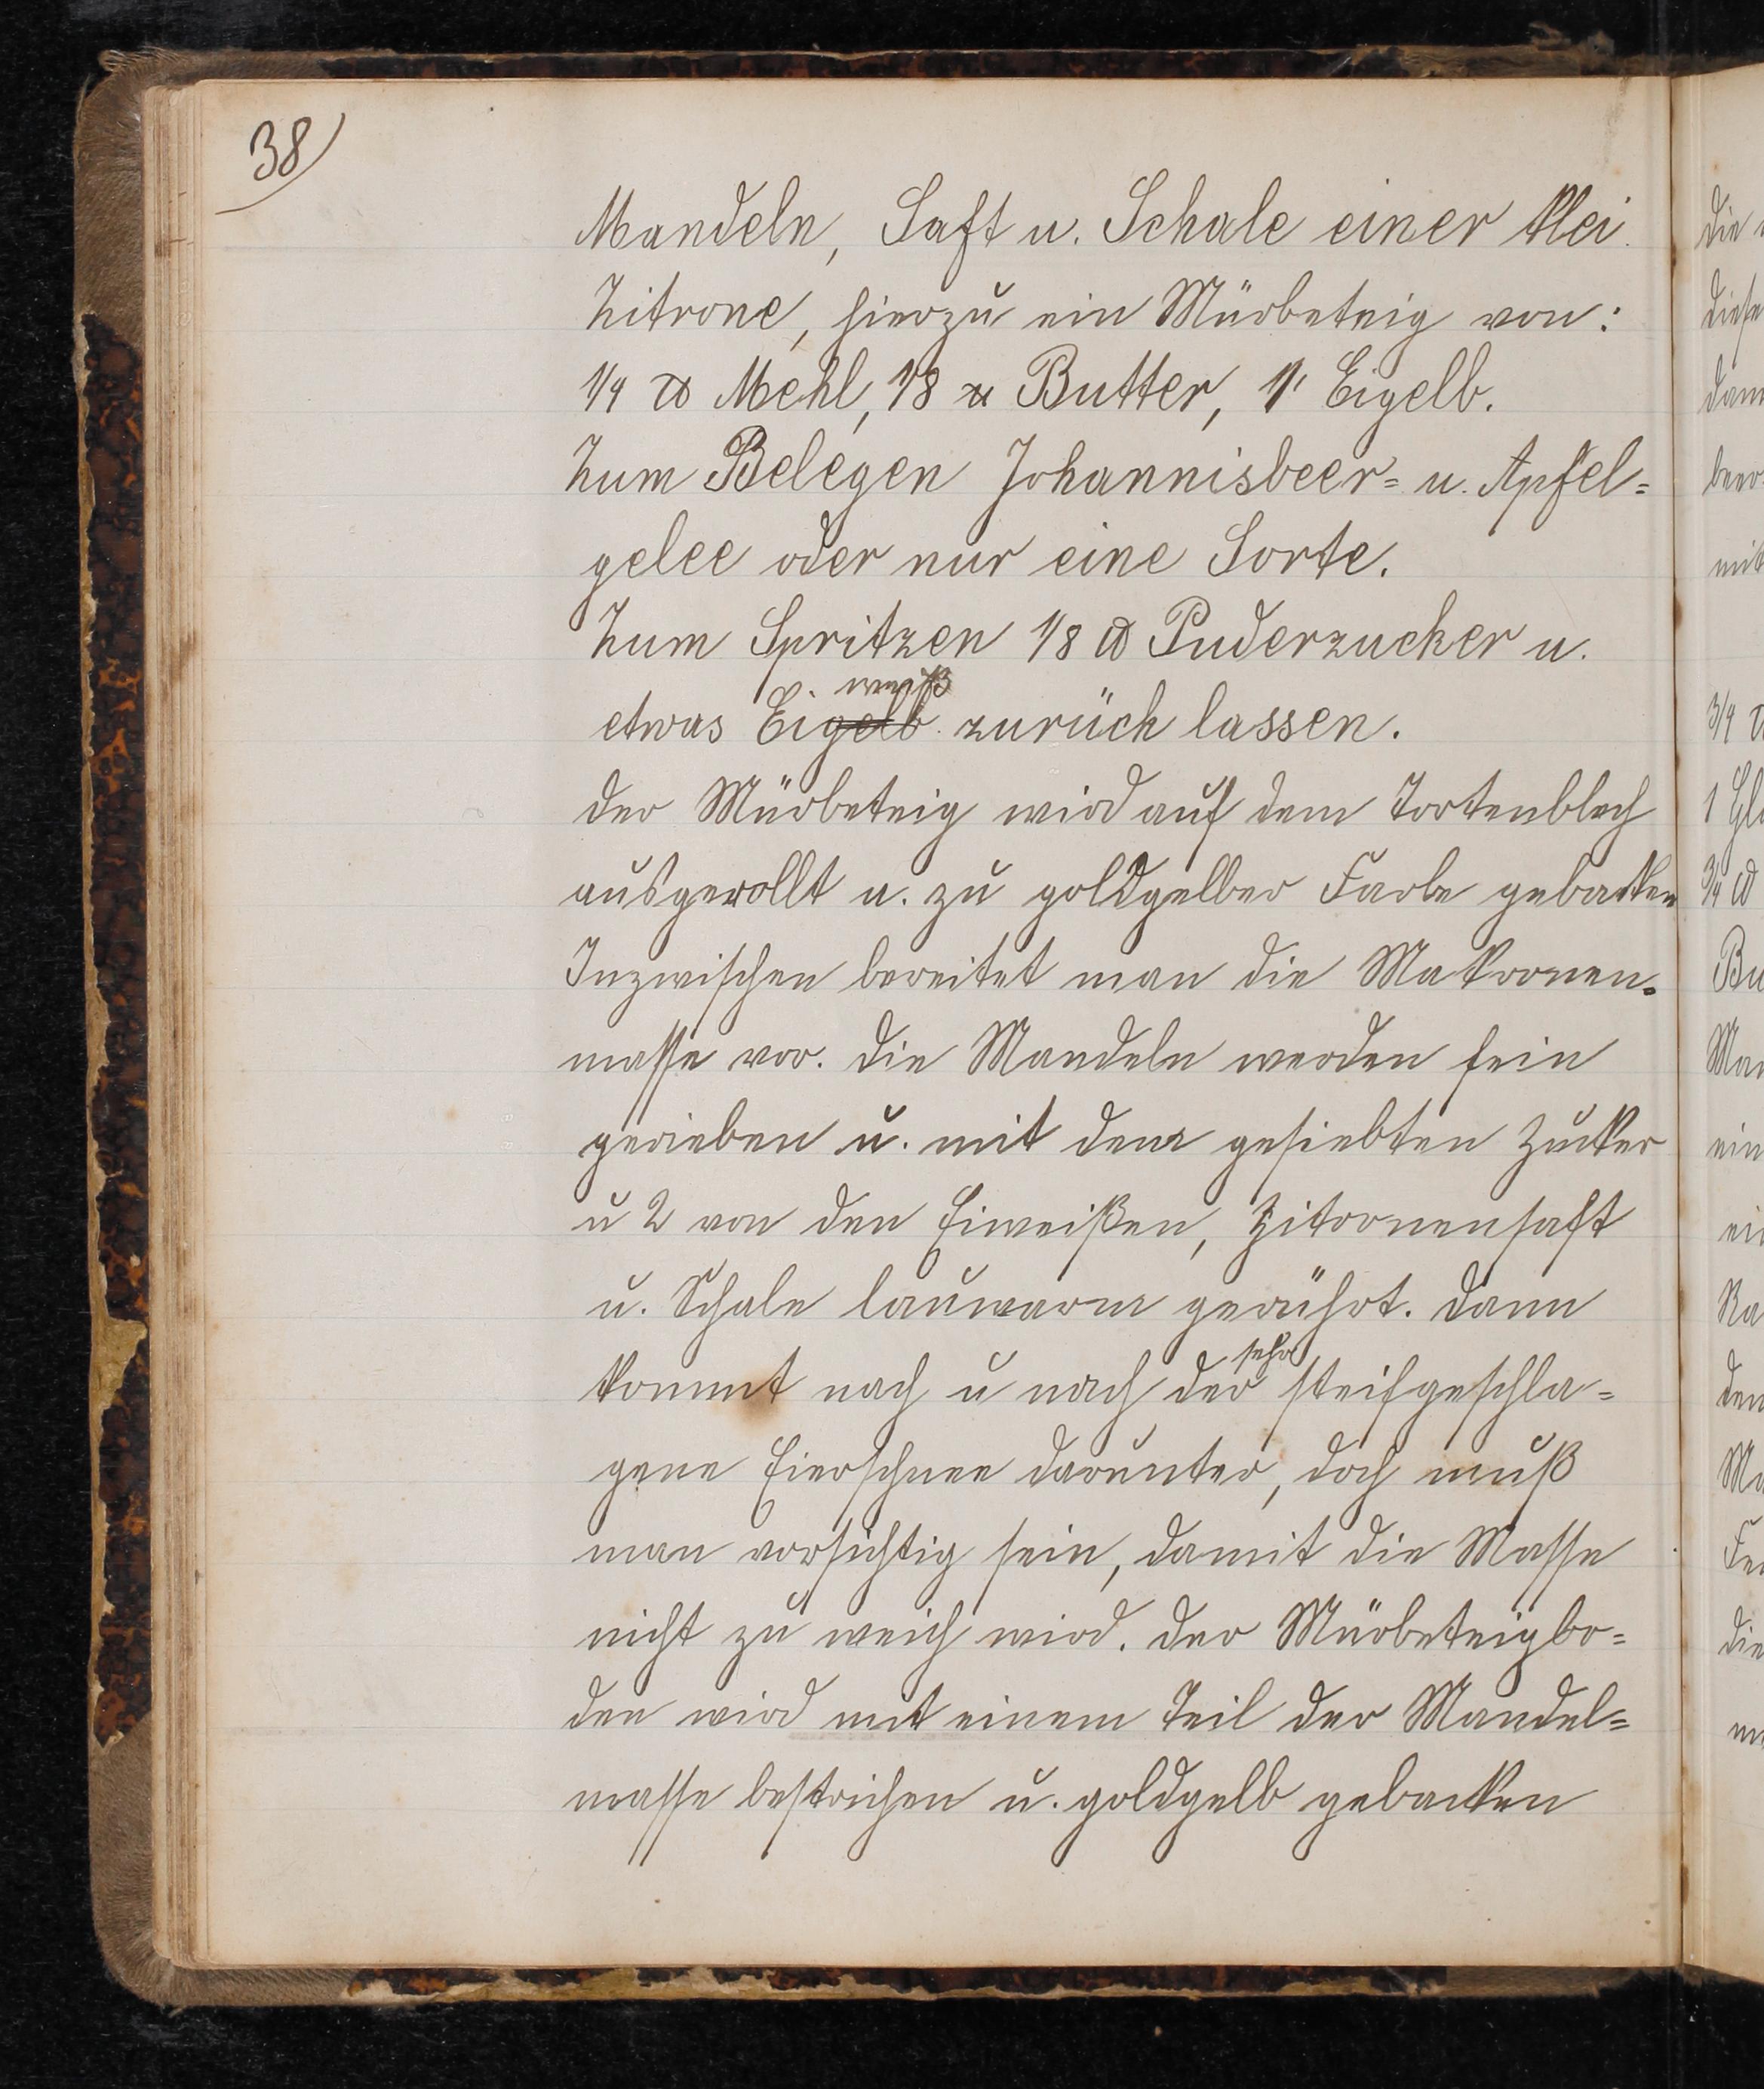 38
Mandeln, Saft u. Schale einer klei.
Zitrone, hierzu ein Mürbeteig von:
1/4 ℔ Mehl, 1/8 ℔ Butter, 1 Eigelb.
Zum Belegen Johannisbeer= u. Apfel=
gelee oder nur eine Sorte.
Zum Spritzen 1/8 ℔ Puderzucker u.
weiß
etwas Eigelb zurück lassen.
der Mürbeteig wird auf dem Tortenblech
ausgerollt u. zu goldgelber Farbe gebacken
Inzwischen bereitet man die Makronen-
masse vor. die Mandeln werden fein
gerieben u. mit dem gesiebten Zucker
u 2 von den Eiweißen, Zitronensaft
u. Schale lauwarm gerührt. dann
sehr
kommt nach u nach der steifgeschla=
gene Eierschnee darunter, doch muß
man vorsichtig sein, damit die Masse
nicht zu weich wird. der Mürbeteigbo=
den wird mit einem Teil der Mandel=
masse bestrichen u. goldgelb gebacken
die
diese
dann
beer
mit
3/4 ℔
1 Gla
3/4 ℔
Bu
Man
ein
Ma
die